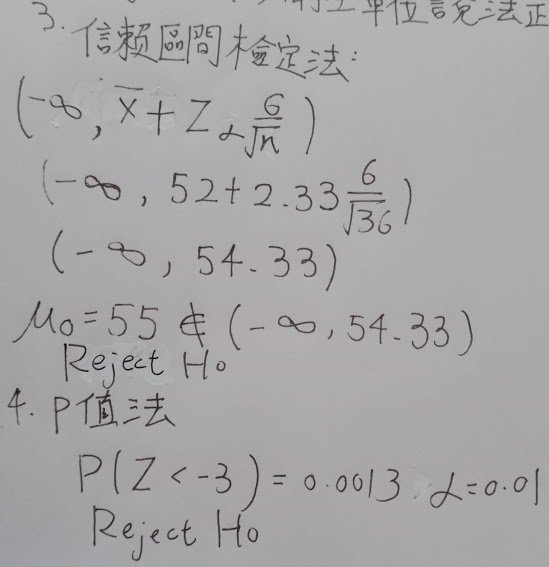 單位
3. 信賴區間檢定法:
(-∞, x̄ + Zα σ/√n )
(-∞, 52+2.33 6/√36)
(-∞, 54.33)
μ0=55 ∉ (-∞, 54.33)
Reject H0
4. P值法
P(Z < -3) = 0.0013 α=0.01
Reject H0